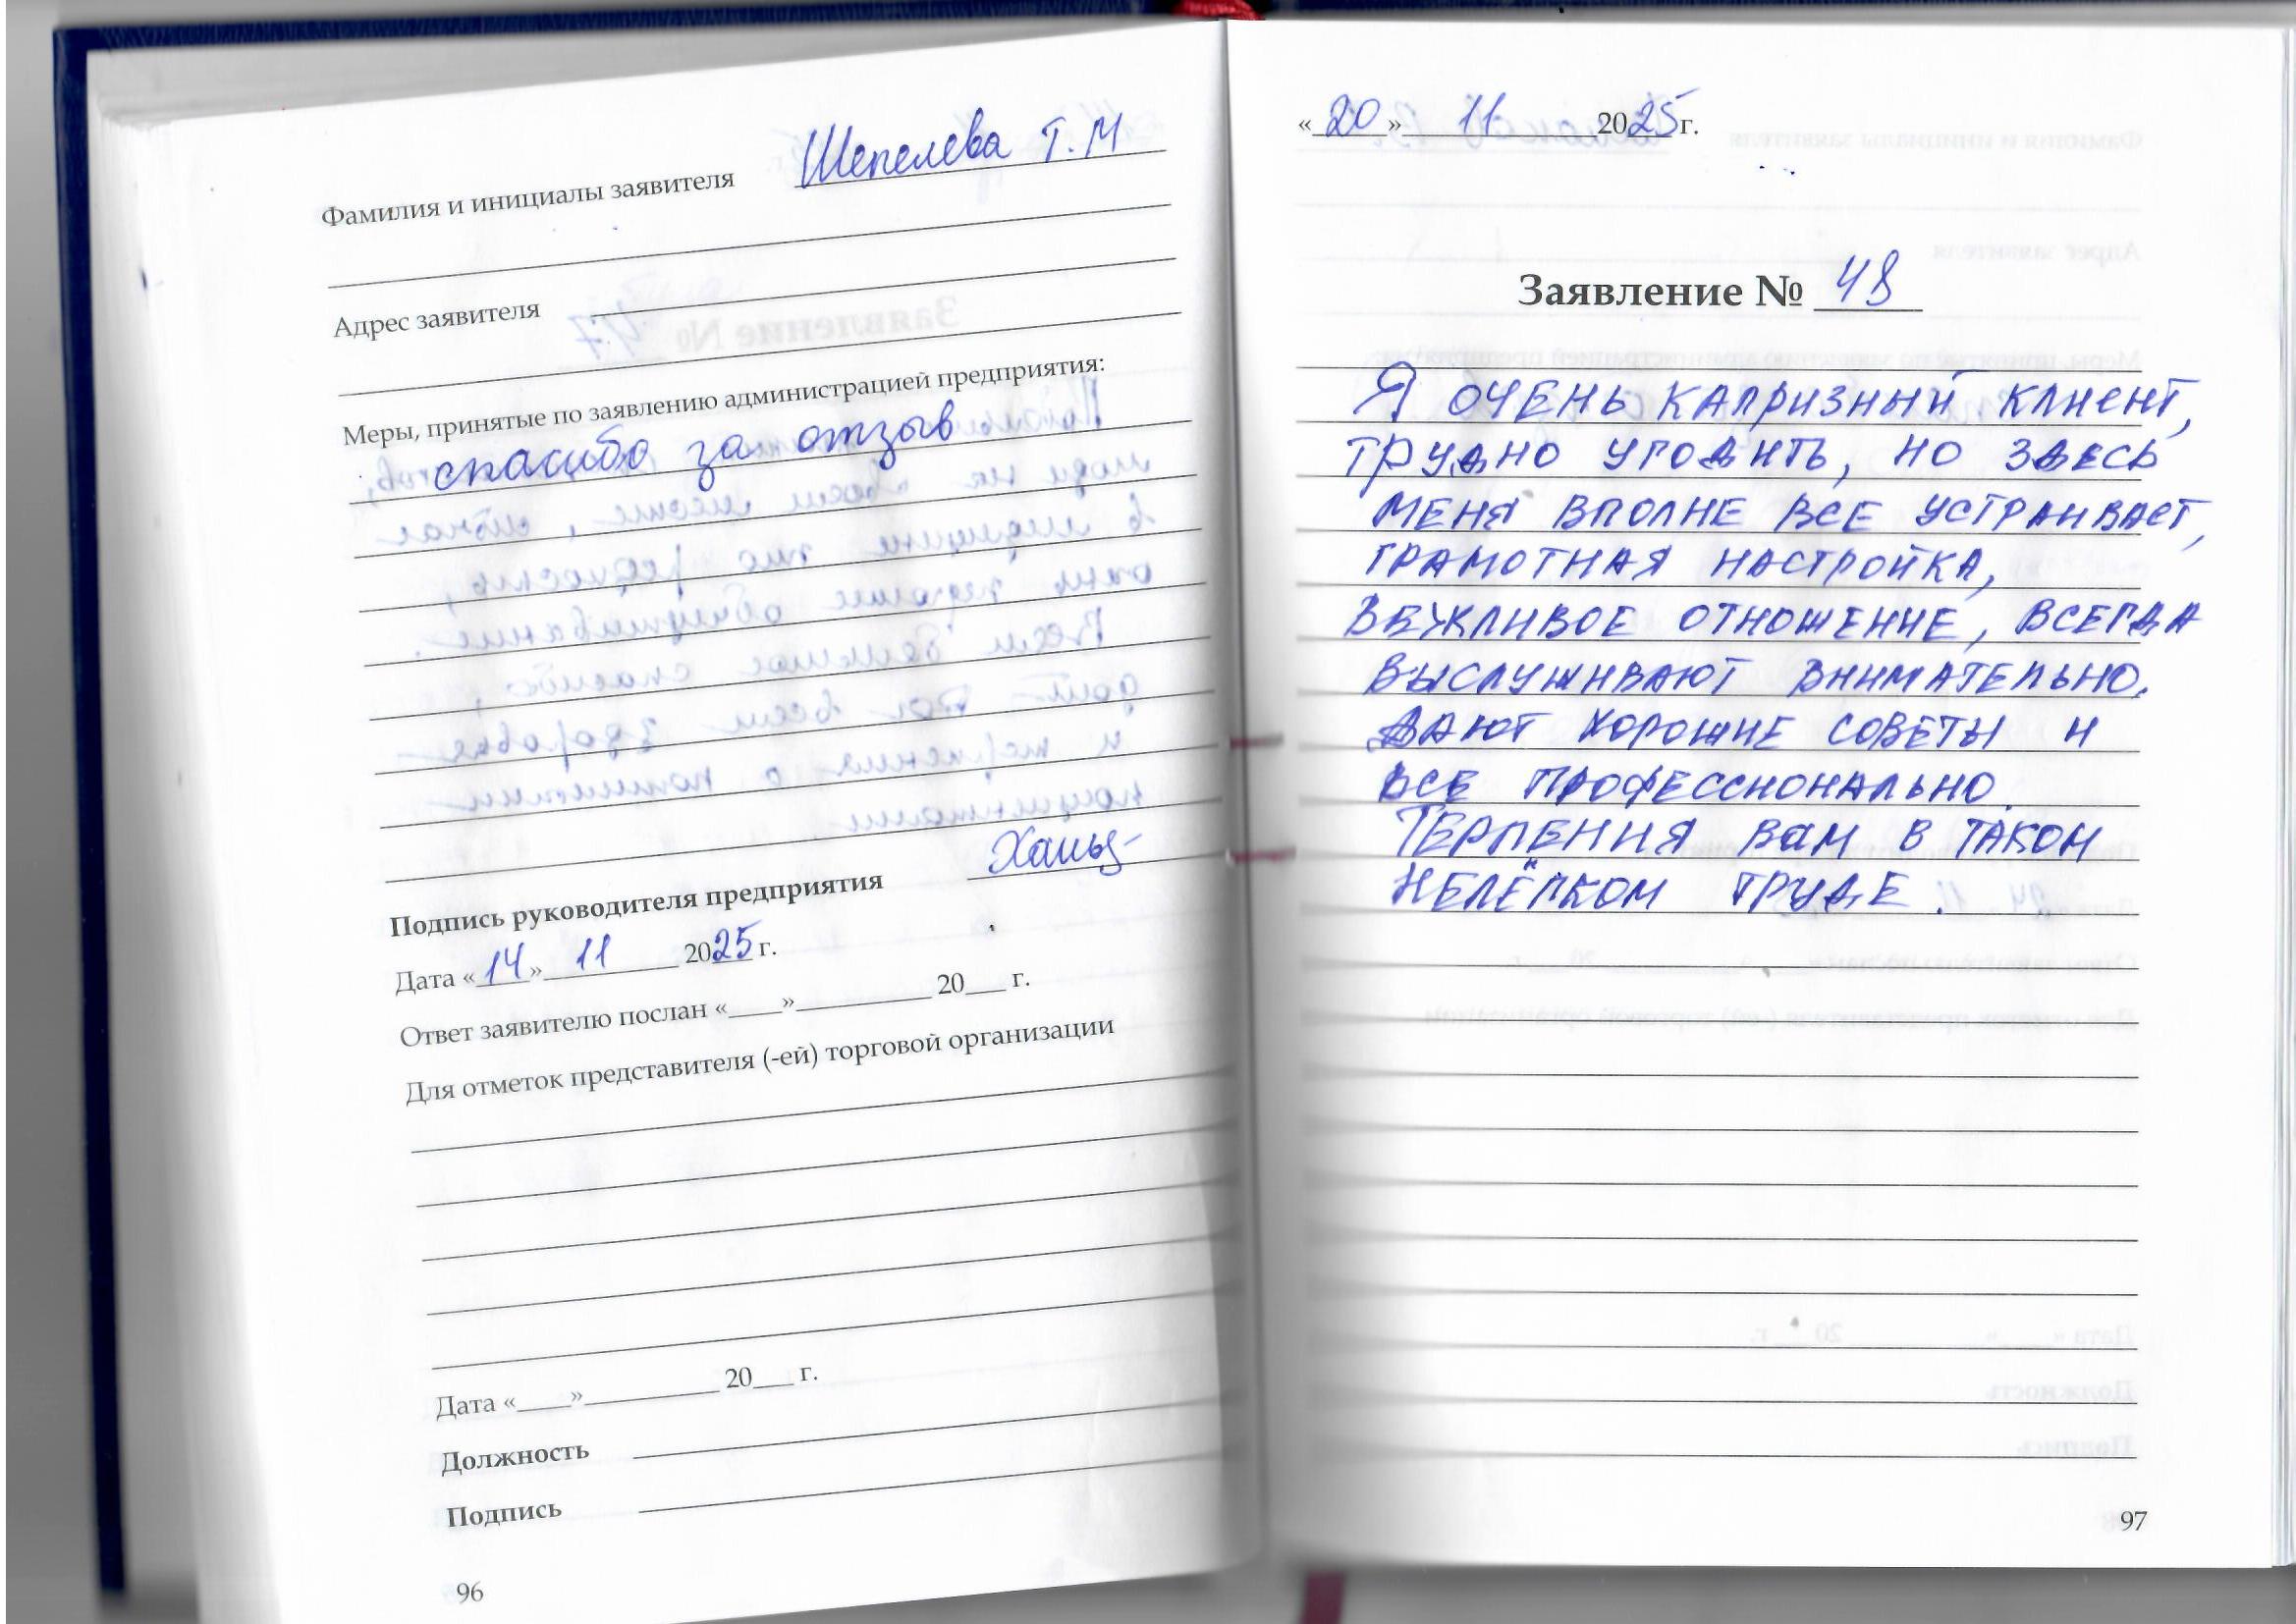 Фамилия и инициалы заявителя Шепелева Т.М
Адрес заявителя
Меры, принятые по заявлению администрацией предприятия:
спасибо за отзыв
Подпись руководителя предприятия
Дата «14» 11 2025 г.
Ответ заявителю послан «____»__________ 20___ г.
Для отметок представителя (-ей) торговой организации
Дата «____»__________ 20___ г.
Должность
Подпись
96
«20» 11 2025г.
Заявление № 48
Я ОЧЕНЬ КАПРИЗНЫЙ КЛИЕНТ,
ТРУДНО УГОДИТЬ, НО ЗДЕСЬ
МЕНЯ ВПОЛНЕ ВСЕ УСТРАИВАЕТ,
ГРАМОТНАЯ НАСТРОЙКА,
ВЕЖЛИВОЕ ОТНОШЕНИЕ, ВСЕГДА
ВЫСЛУШИВАЮТ ВНИМАТЕЛЬНО.
ДАЮТ ХОРОШИЕ СОВЕТЫ И
ВСЕ ПРОФЕССИОНАЛЬНО.
ТЕРПЕНИЯ ВАМ В ТАКОМ
НЕЛЁГКОМ ТРУДЕ!
97